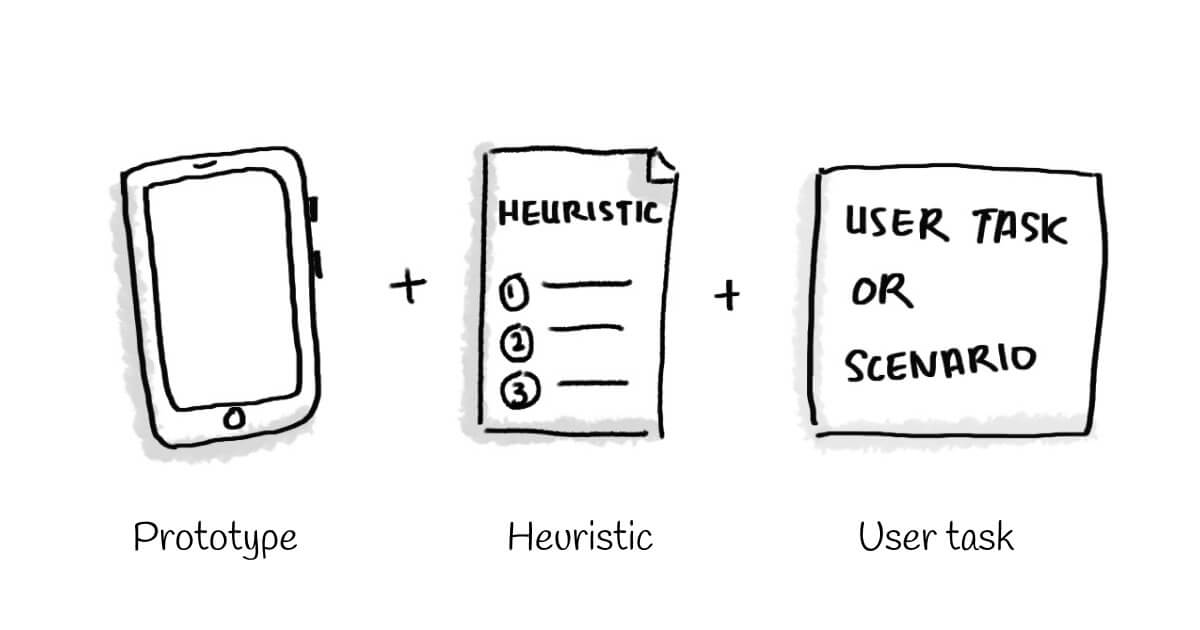 +
+
HEURISTIC
1
2
3
USER TASK
OR
SCENARIO
Prototype
Heuristic
User task